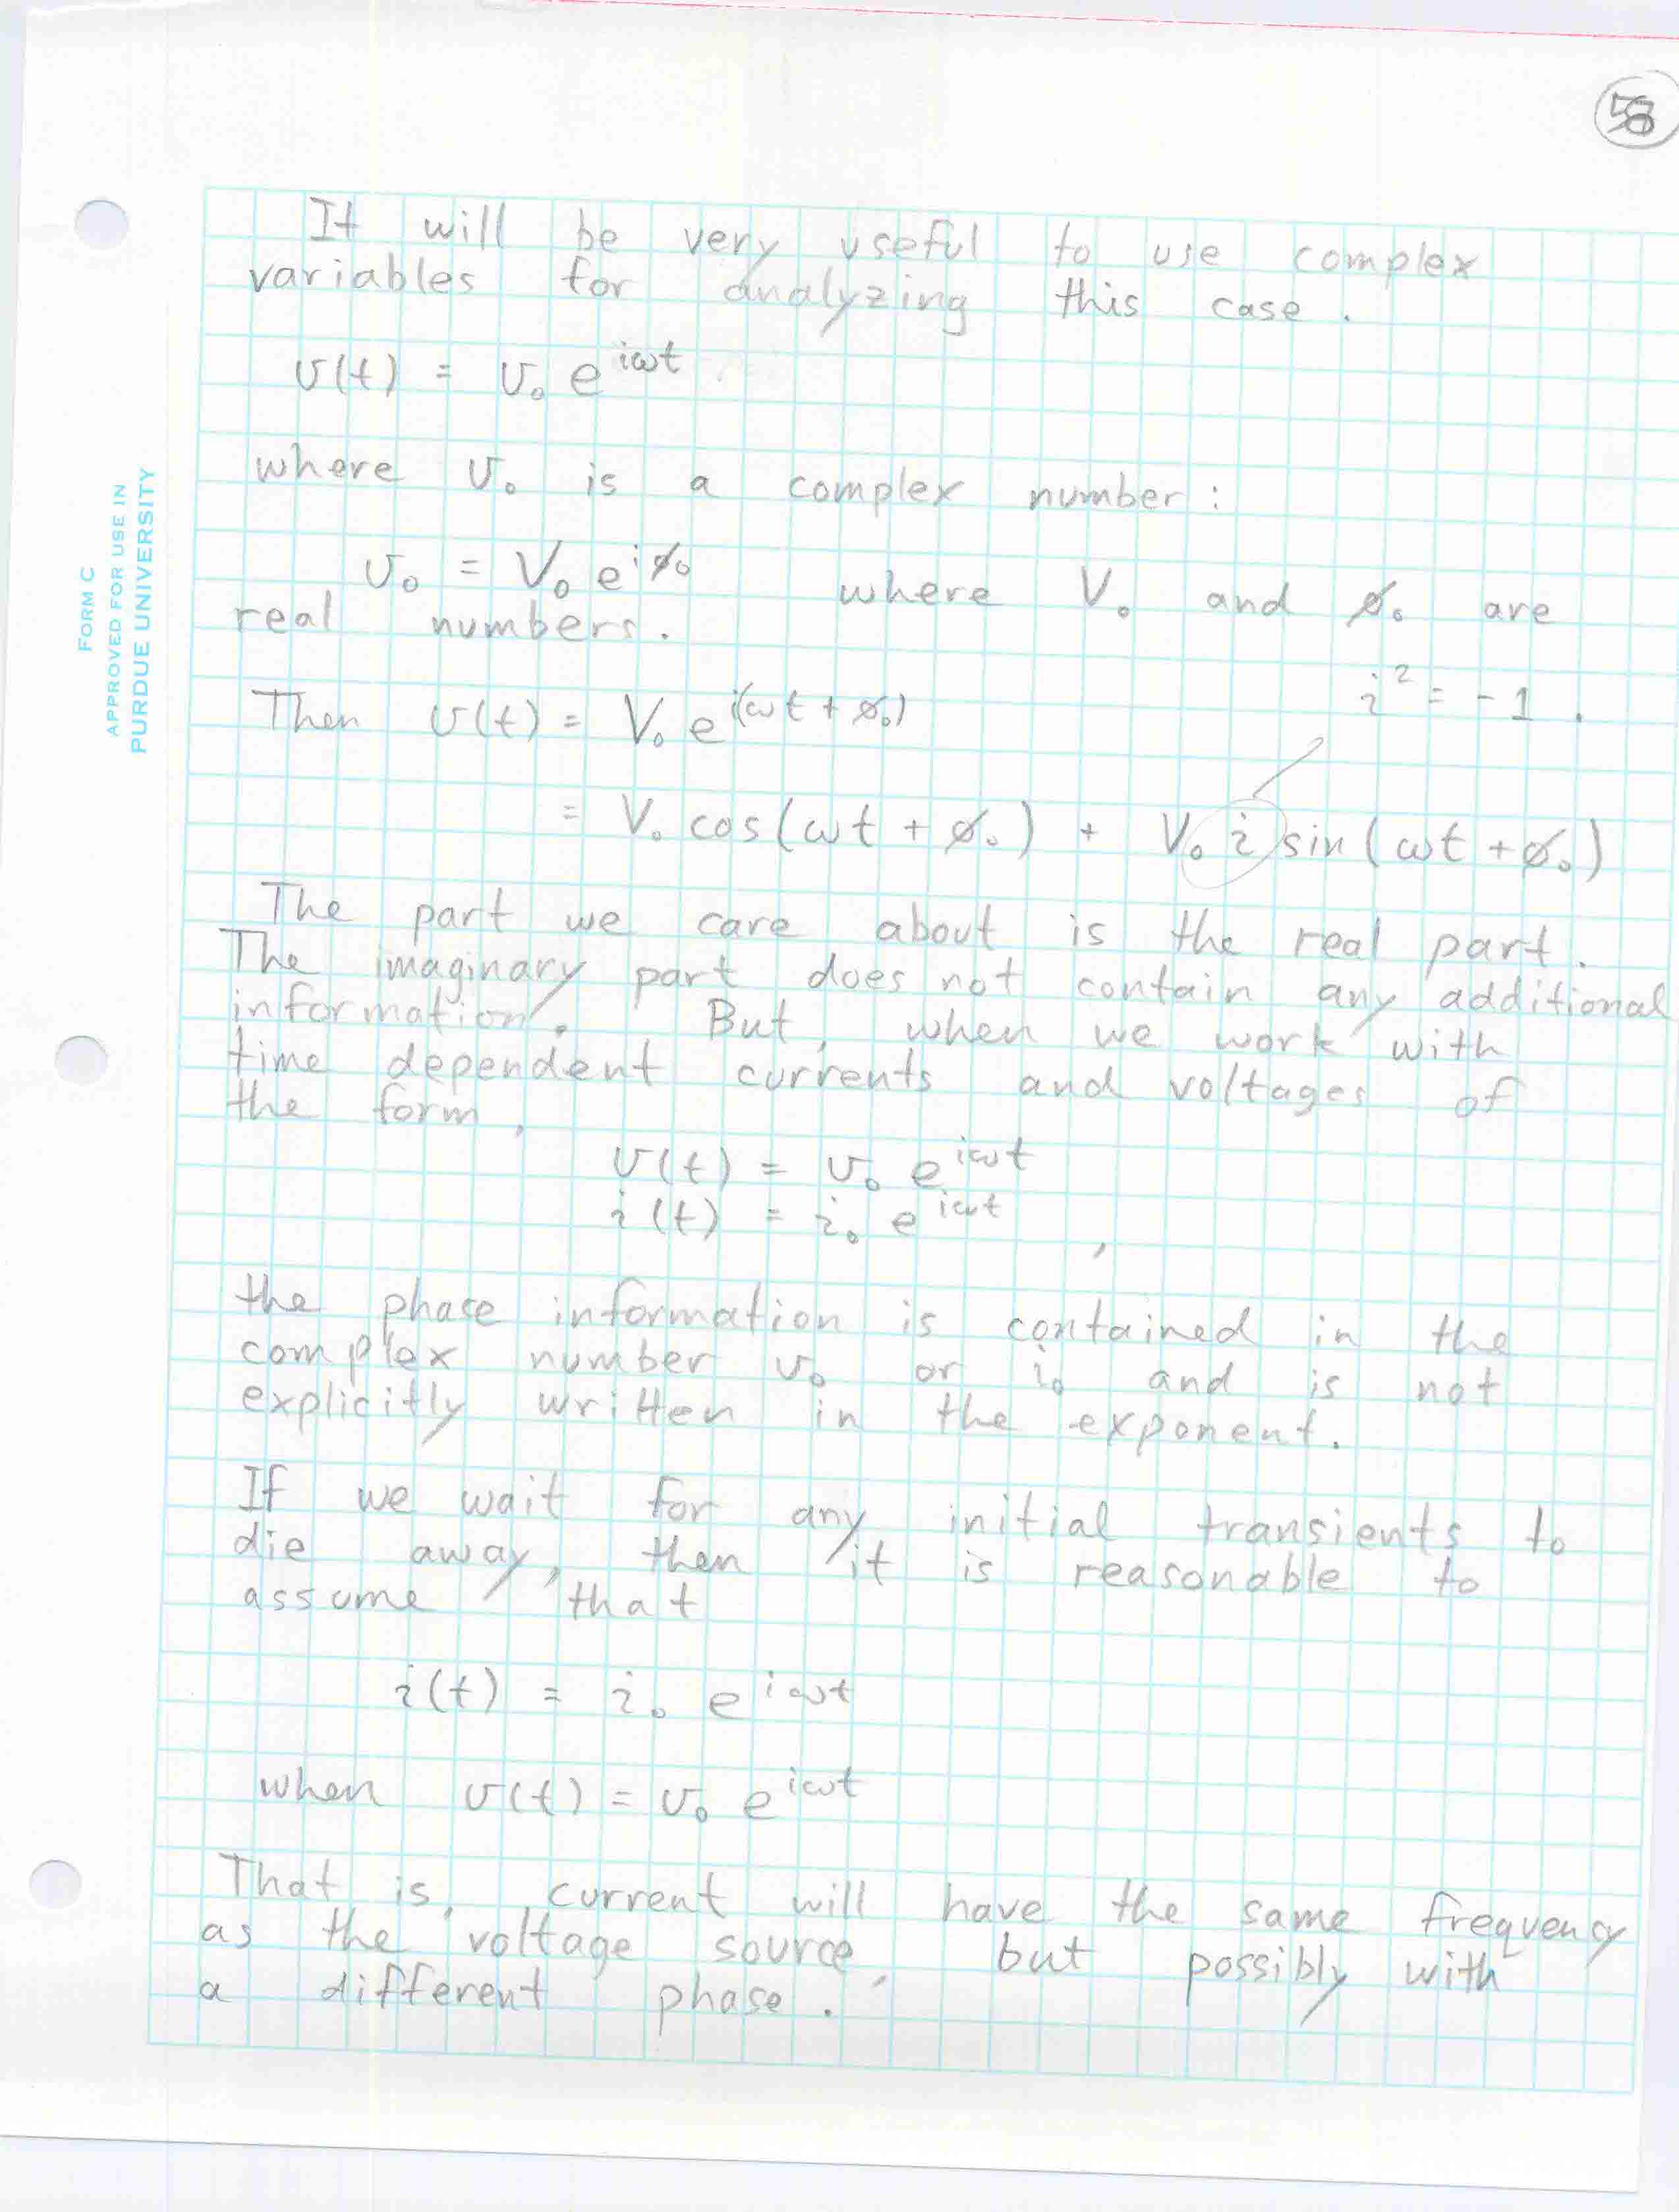 58
It will be very useful to use complex
variables for analyzing this case.
v(t) = v₀ e^{iωt}
where v₀ is a complex number:
v₀ = V₀ e^{iø₀} where V₀ and ø₀ are
real numbers.
i² = -1.
Then v(t) = V₀ e^{i(ωt + ø₀)}
= V₀ cos(ωt + ø₀) + V₀ i sin(ωt + ø₀)
The part we care about is the real part.
The imaginary part does not contain any additional
information. But, when we work with
time dependent currents and voltages of
the form,
v(t) = v₀ e^{iωt}
i(t) = i₀ e^{iωt} ,
the phase information is contained in the
complex number v₀ or i₀ and is not
explicitly written in the exponent.
If we wait for any initial transients to
die away, then it is reasonable to
assume that
i(t) = i₀ e^{iωt}
when v(t) = v₀ e^{iωt}
That is, current will have the same frequency
as the voltage source, but possibly with
a different phase.
FORM C
APPROVED FOR USE IN
PURDUE UNIVERSITY